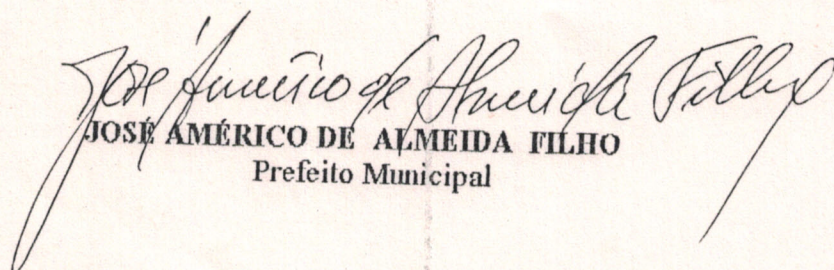 José Américo de Almeida Filho
JOSÉ AMÉRICO DE ALMEIDA FILHO
Prefeito Municipal